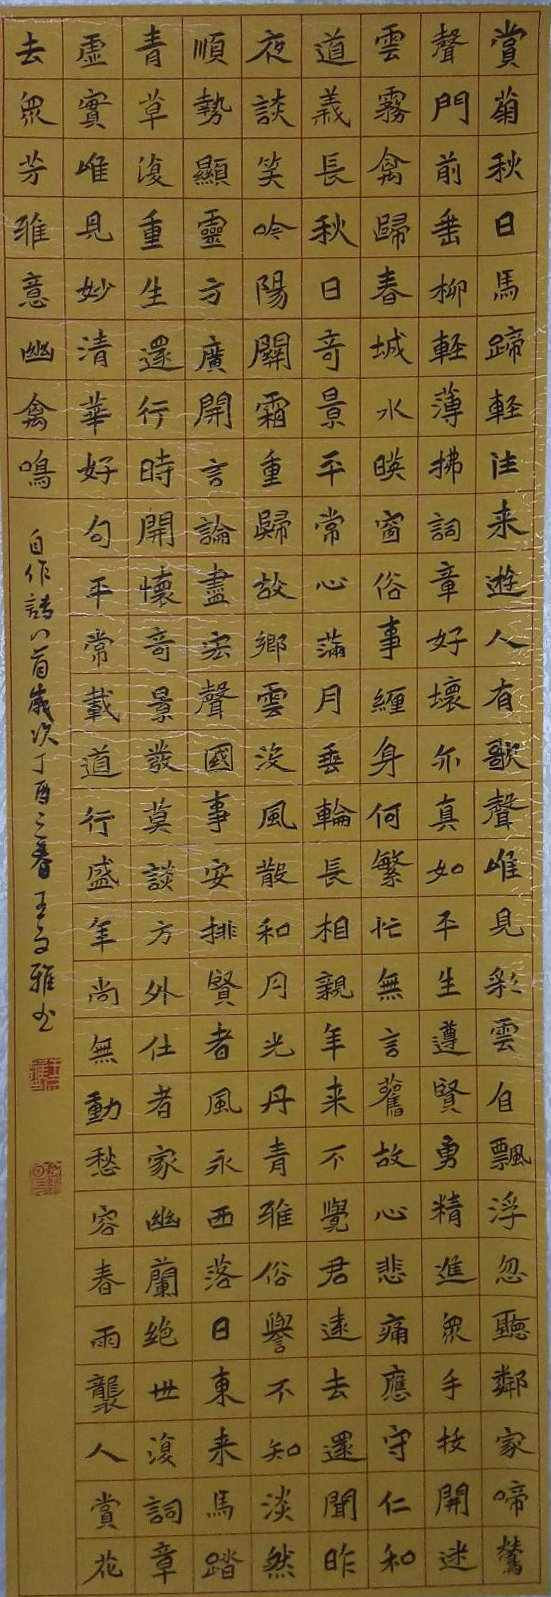 賞菊秋日馬蹄輕往来遊人有歌聲唯見彩雲自飄浮忽聽鄰家啼鶯
聲門前垂柳輕薄拂詞章好壞尓真如平生遵賢勇精進眾手扳開迷
雲霧禽歸春城水暎窗俗事纏身何繁忙無言舊故心悲痛應守仁和
道義長秋日竒景平常心滿月垂輪長相親年来不覺君遠去還聞昨
夜談笑吟陽關霜重歸故鄉雲没風散和月光丹青雅俗譽不知淡然
順勢顯靈方廣開言論盡宏聲國事安排賢者風永西落日東来馬踏
青草復重生還行時開懷竒景發莫談方外仕者家幽蘭绝世復詞章
虛實唯見妙清華好句平常載道行盛年尚無動愁容春雨襲人賞花
去眾芳雅意幽禽鳴
自作詩八首歲次丁酉之春王文雅书